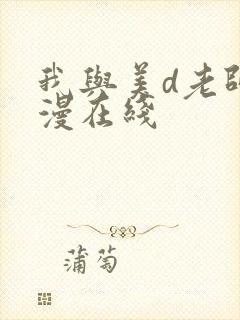 我與美d老師
漫在綫
蒲萄